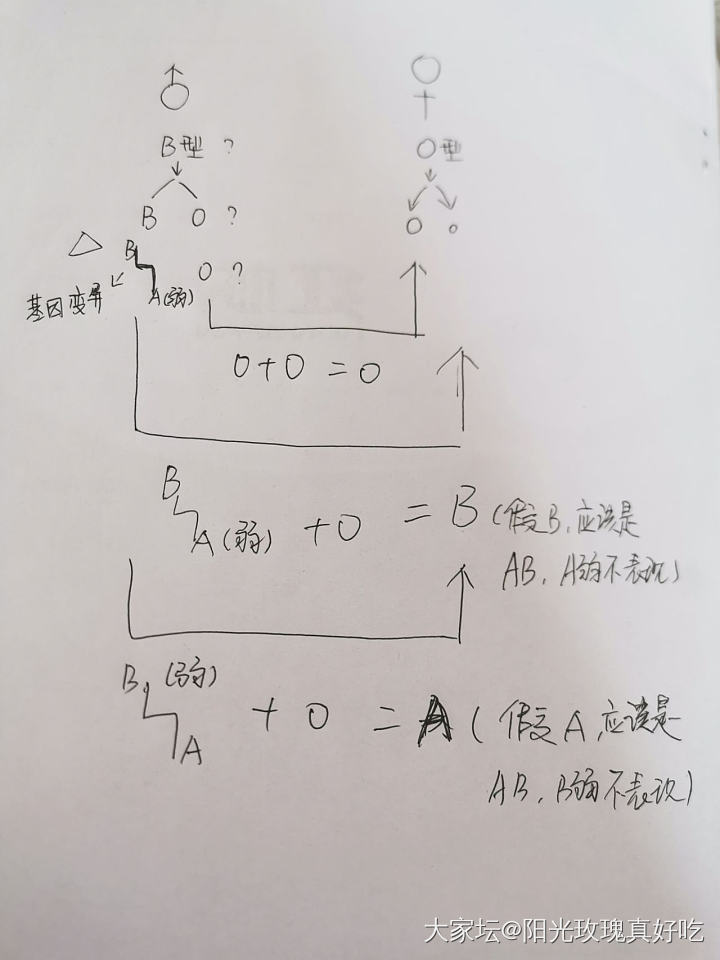 ♂ ♀
B型 ? O型
B O ? O o
△ B O ?
基因变异 A(弱)
O+O=O
B
A(弱) +O =B(假B,应该是
AB,A弱不表现)
B(弱)
A +O =A(假A,应该是
AB,B弱不表现)
大家坛@阳光玫瑰真好吃